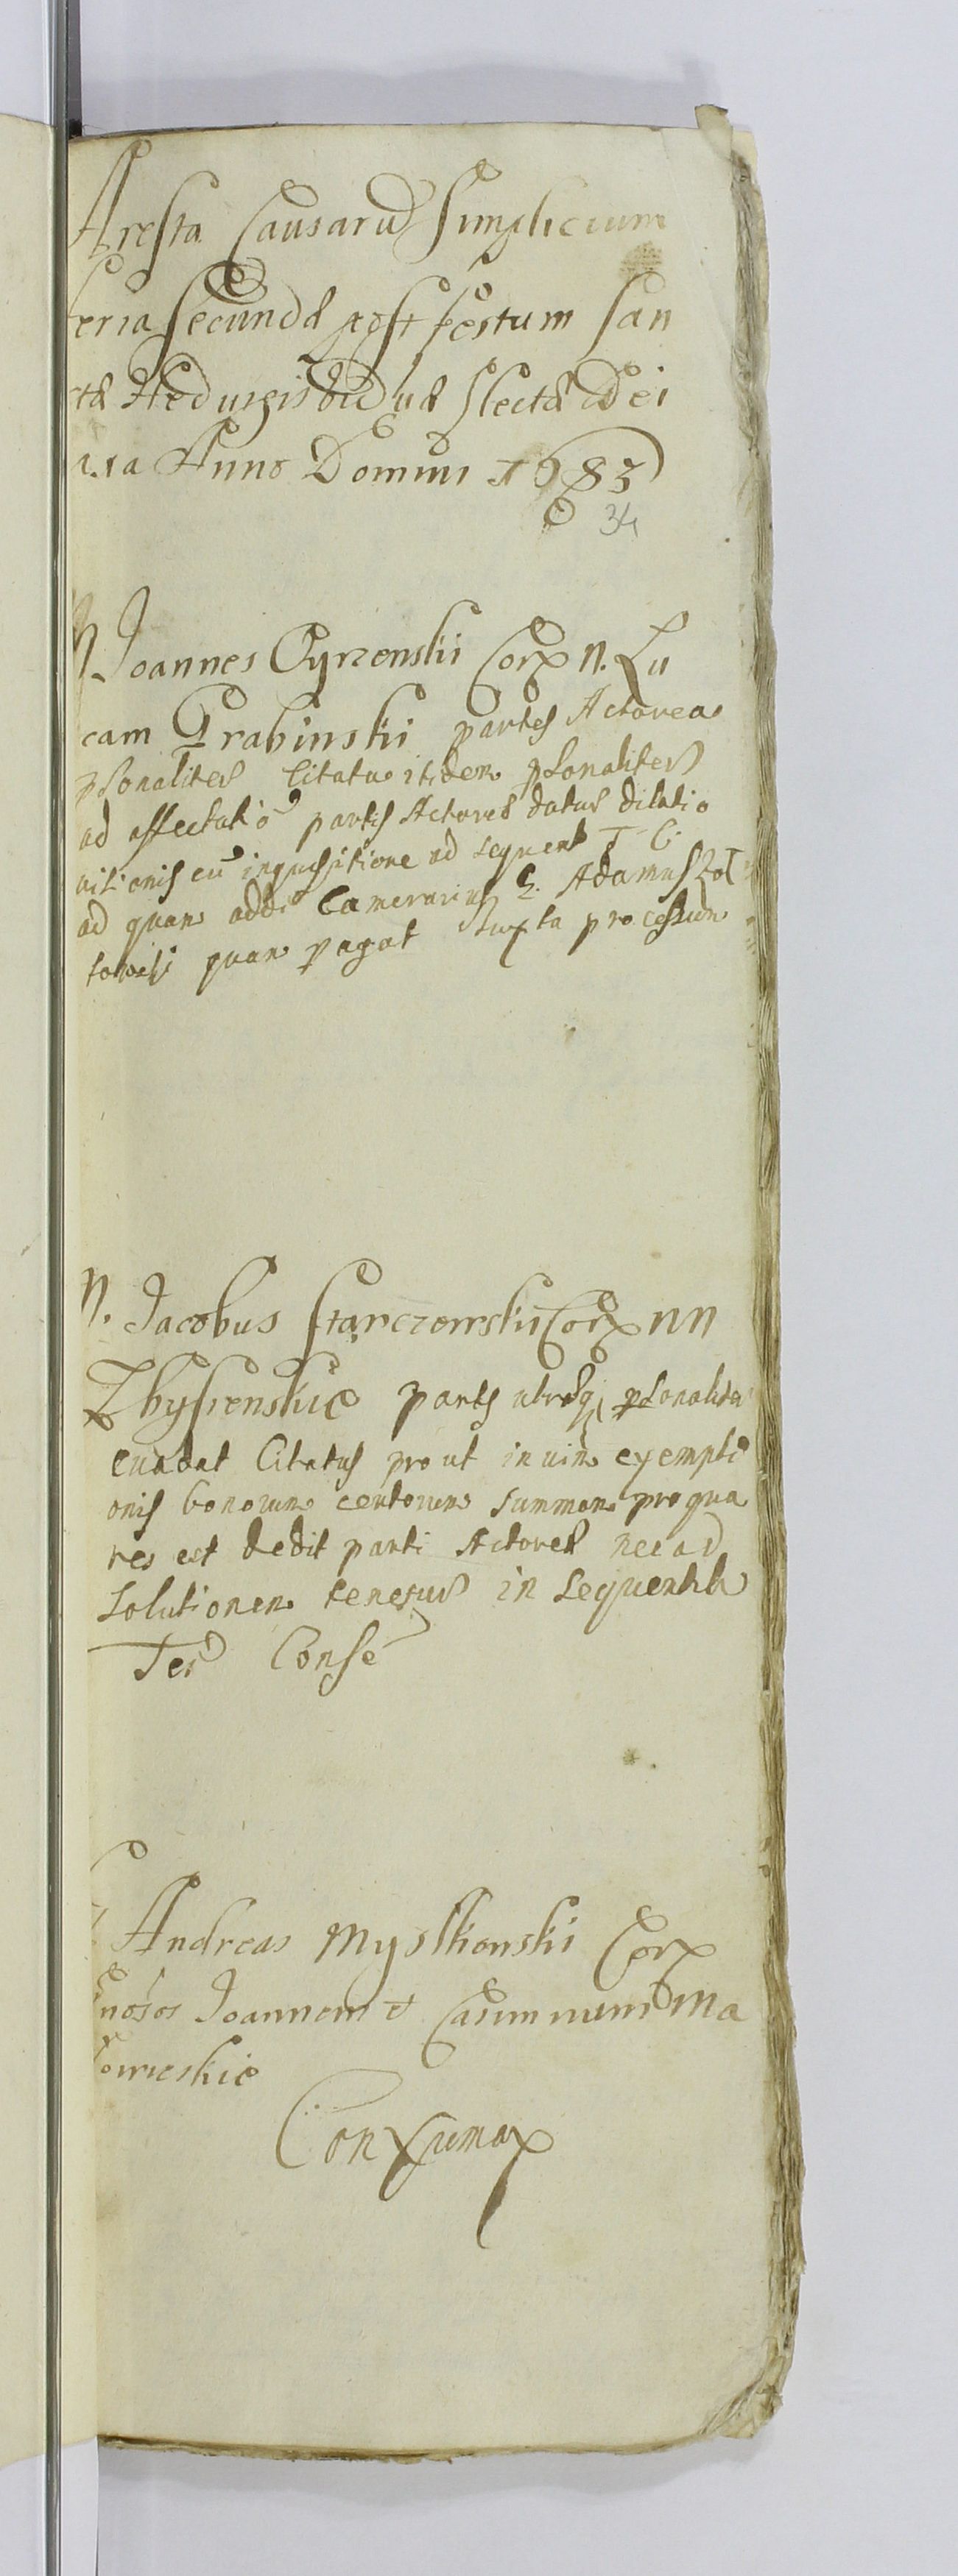 Aresta Causarū Simplicium
feria Secunda post festum San
ctæ Hedvigis viduæ Electæ Dei
Anno Domini 1683
34
N. Joannes Cyrzenskii Cora N. Lu
cam Grabinskii partes Actorea
psonaliter Citatus itidem psonaliter
ad affectatiō partis Actoreæ datur dilatio
cū inquisitione ad sequent T. C.
ad quam addi Camerarius G. Adamus Zol
towsk quam pagat Iuxta processum
N. Jacobus Starczewskii Cora NN
Zbyszenskie partes utræq psonaliter
evadat Citatus prout in vim exempti
onis bonorum certorum summam pro qua
res est dedit parti Actoreæ nec ad
solutionem tenetur in sequentib
Ter Conse
Andreas Myszkowskii Cora
Gnosos Joannem et Casimirum Ma
kowieskie
Contumax